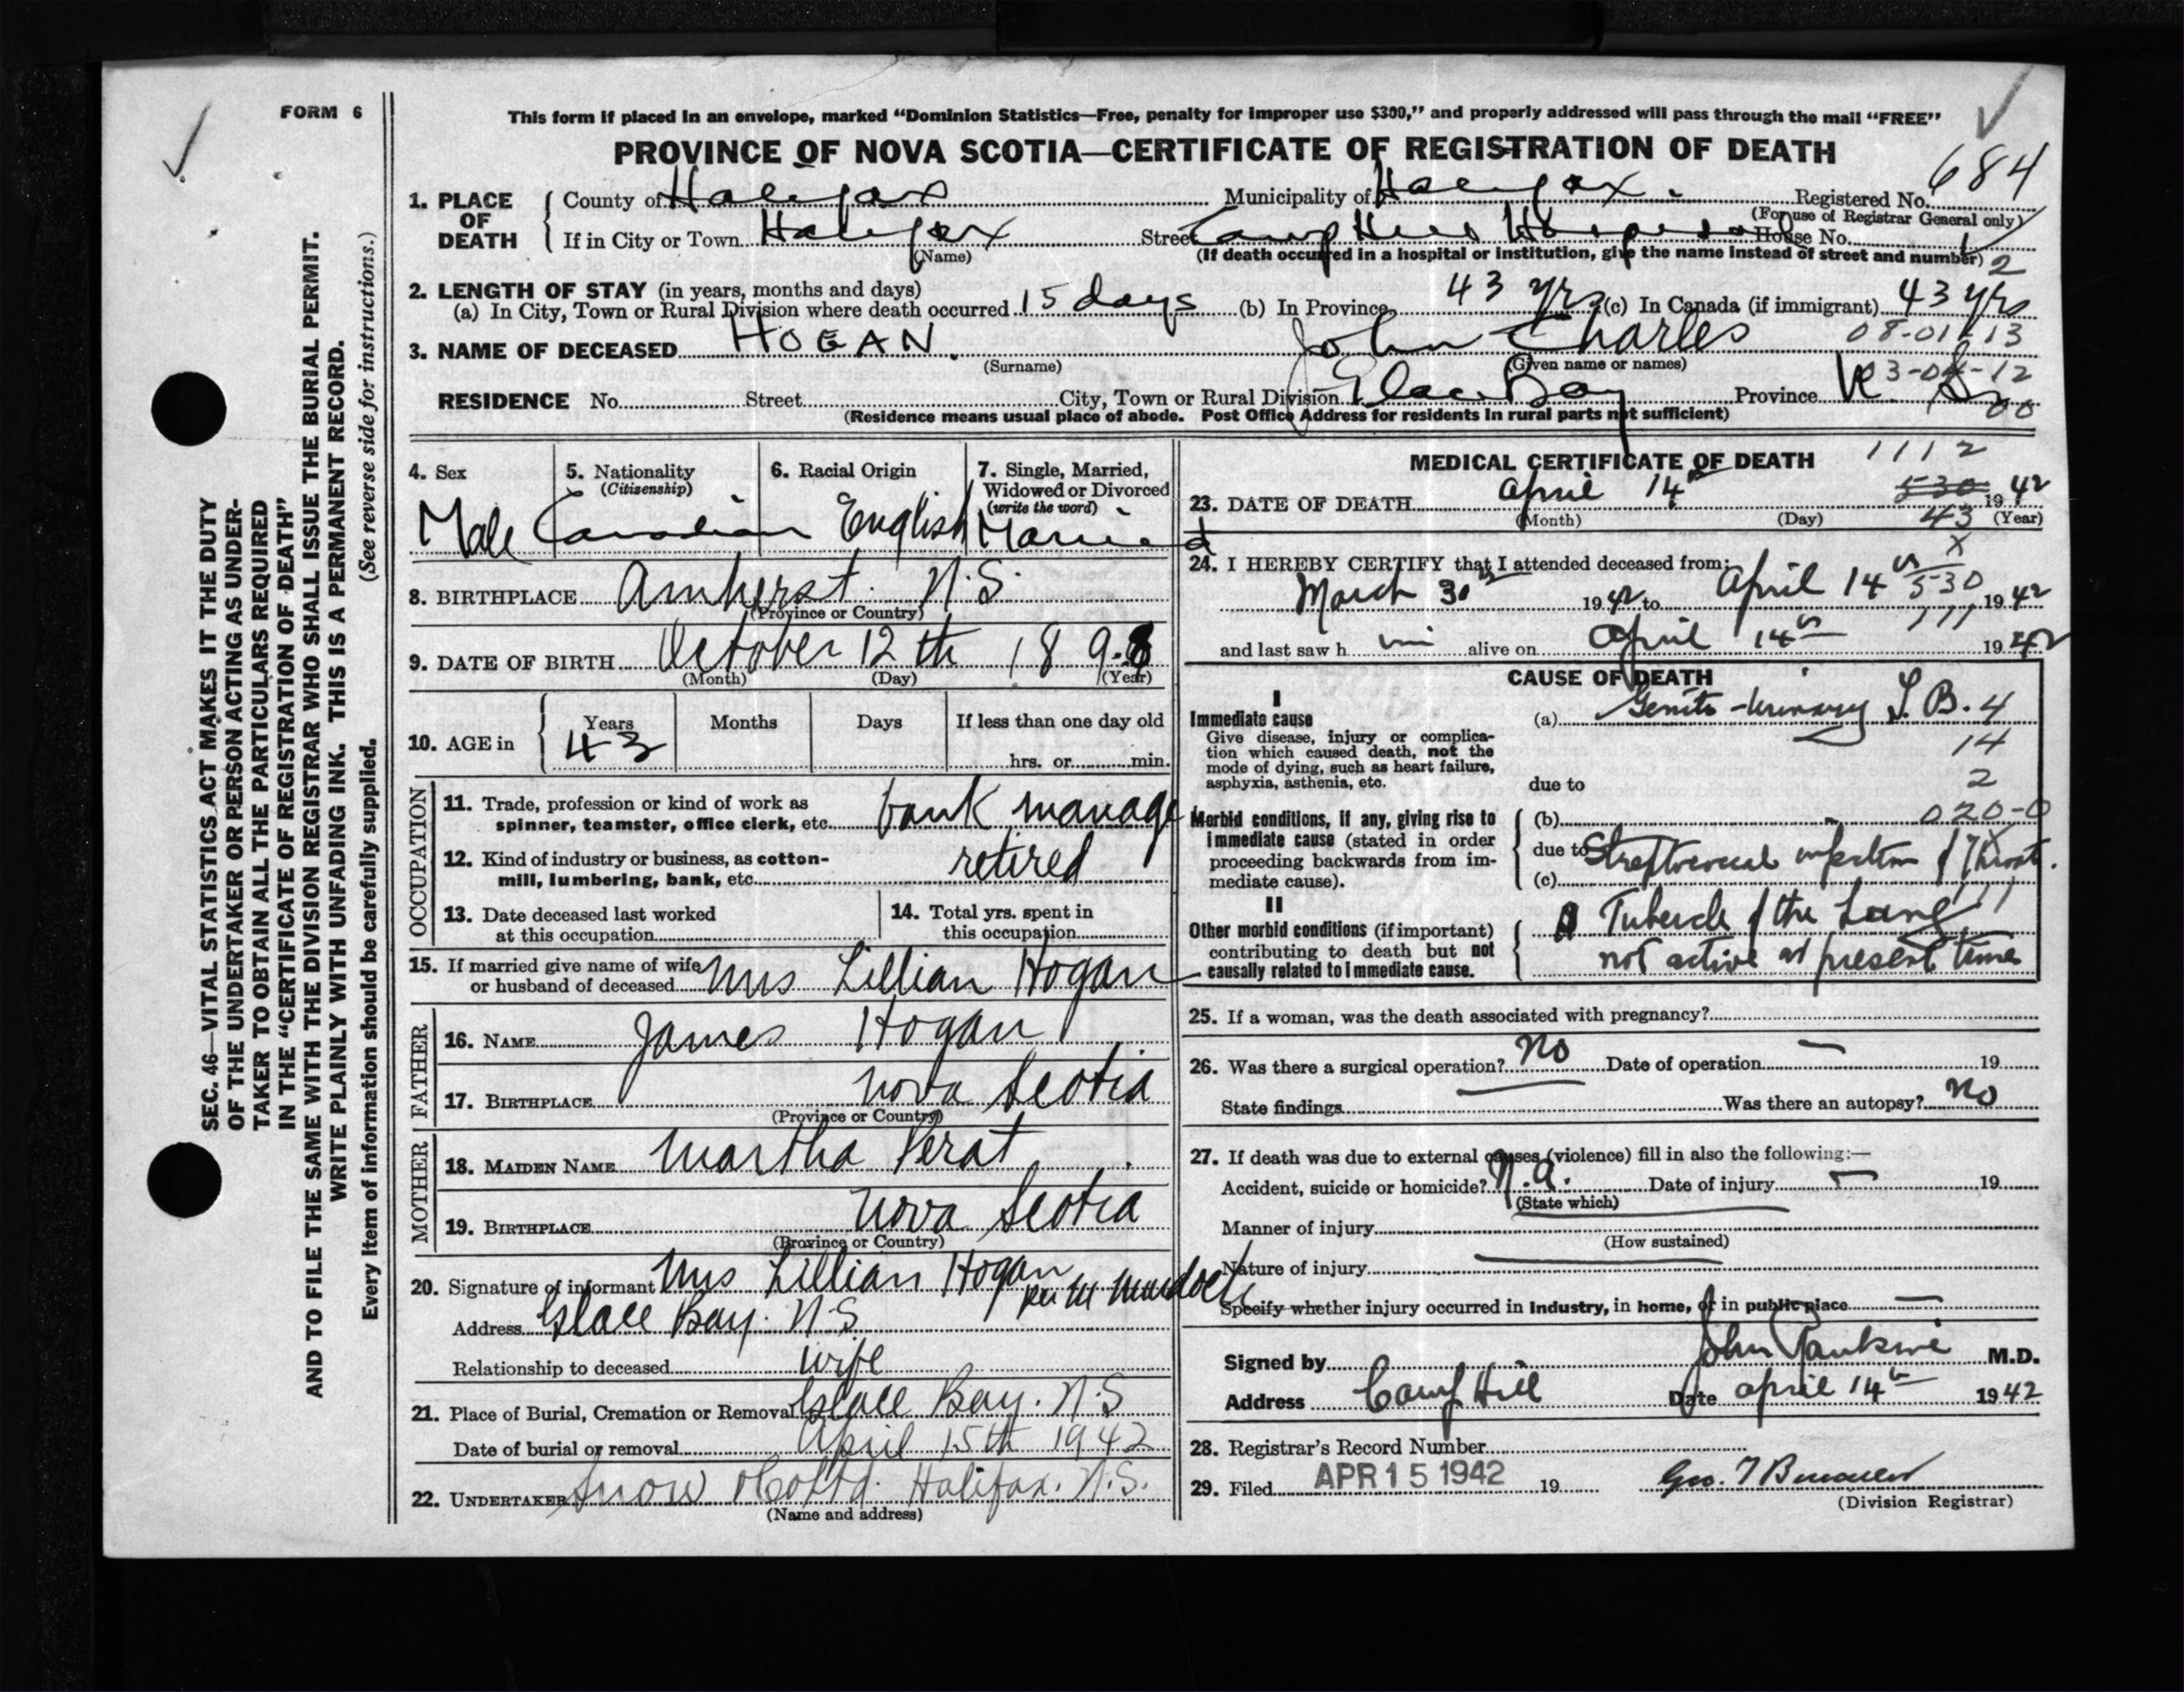 FORM 6
This form if placed in an envelope, marked “Dominion Statistics—Free, penalty for improper use $300,” and properly addressed will pass through the mail “FREE”
PROVINCE OF NOVA SCOTIA—CERTIFICATE OF REGISTRATION OF DEATH
684
1. PLACE OF DEATH
County of Halifax Municipality of Halifax. Registered No.
(For use of Registrar General only)
If in City or Town Halifax Street Camp Hill Hospital House No.
(Name) (If death occurred in a hospital or institution, give the name instead of street and number) 2
2. LENGTH OF STAY (in years, months and days)
(a) In City, Town or Rural Division where death occurred 15 days (b) In Province 43 yrs (c) In Canada (if immigrant) 43 yrs
08-01-13
3. NAME OF DECEASED HOGAN. John Charles
(Surname) (Given name or names)
03-04-12
RESIDENCE No. Street City, Town or Rural Division Glace Bay Province N. S.
00
(Residence means usual place of abode. Post Office Address for residents in rural parts not sufficient)
4. Sex 5. Nationality (Citizenship) 6. Racial Origin 7. Single, Married, Widowed or Divorced (write the word)
Male Canadian English Married
8. BIRTHPLACE Amherst. N.S.
(Province or Country)
9. DATE OF BIRTH October 12th 1898
(Month) (Day) (Year)
10. AGE in Years Months Days If less than one day old
43 hrs. or min.
OCCUPATION
11. Trade, profession or kind of work as
spinner, teamster, office clerk, etc. bank manage
12. Kind of industry or business, as cotton-
mill, lumbering, bank, etc. retired
13. Date deceased last worked
at this occupation
14. Total yrs. spent in
this occupation
15. If married give name of wife
or husband of deceased Mrs Lillian Hogan
FATHER
16. NAME James Hogan
17. BIRTHPLACE Nova Scotia
(Province or Country)
MOTHER
18. MAIDEN NAME Martha Perat
19. BIRTHPLACE Nova Scotia
(Province or Country)
20. Signature of informant Mrs Lillian Hogan
per M Murdoch
Address Glace Bay. N S
Relationship to deceased wife
21. Place of Burial, Cremation or Removal Glace Bay. N.S
Date of burial or removal April 15th 1942
22. UNDERTAKER Snow & Co Ltd. Halifax. N.S.
(Name and address)
MEDICAL CERTIFICATE OF DEATH 1112
23. DATE OF DEATH April 14th 530 1942
(Month) (Day) 43 (Year)
X
24. I HEREBY CERTIFY that I attended deceased from:
March 30th 1942 to April 14th 530 1942
111
and last saw h im alive on April 14th 1942
CAUSE OF DEATH
I
Immediate cause
Give disease, injury or complica-
tion which caused death, not the
mode of dying, such as heart failure,
asphyxia, asthenia, etc.
(a) Genito-Urinary T.B. 4
14
due to 2
020-0
Morbid conditions, if any, giving rise to
immediate cause (stated in order
proceeding backwards from im-
mediate cause).
(b)
due to Streptococcal infection of Throat.
(c)
II
Other morbid conditions (if important)
contributing to death but not
causally related to immediate cause.
Tubercle of the Lung
not active at present time
25. If a woman, was the death associated with pregnancy?
26. Was there a surgical operation? No Date of operation — 19
State findings Was there an autopsy? No
27. If death was due to external causes (violence) fill in also the following:—
Accident, suicide or homicide? N.A. Date of injury — 19
(State which)
Manner of injury
(How sustained)
Nature of injury
Specify whether injury occurred in industry, in home, or in public place —
Signed by John Rankine M.D.
Address Camp Hill Date April 14th 1942
28. Registrar's Record Number
29. Filed APR 15 1942 19
(Division Registrar)
SEC. 46—VITAL STATISTICS ACT MAKES IT THE DUTY
OF THE UNDERTAKER OR PERSON ACTING AS UNDER-
TAKER TO OBTAIN ALL THE PARTICULARS REQUIRED
IN THE “CERTIFICATE OF REGISTRATION OF DEATH”
AND TO FILE THE SAME WITH THE DIVISION REGISTRAR WHO SHALL ISSUE THE BURIAL PERMIT.
WRITE PLAINLY WITH UNFADING INK. THIS IS A PERMANENT RECORD.
(See reverse side for instructions.)
Every item of information should be carefully supplied.